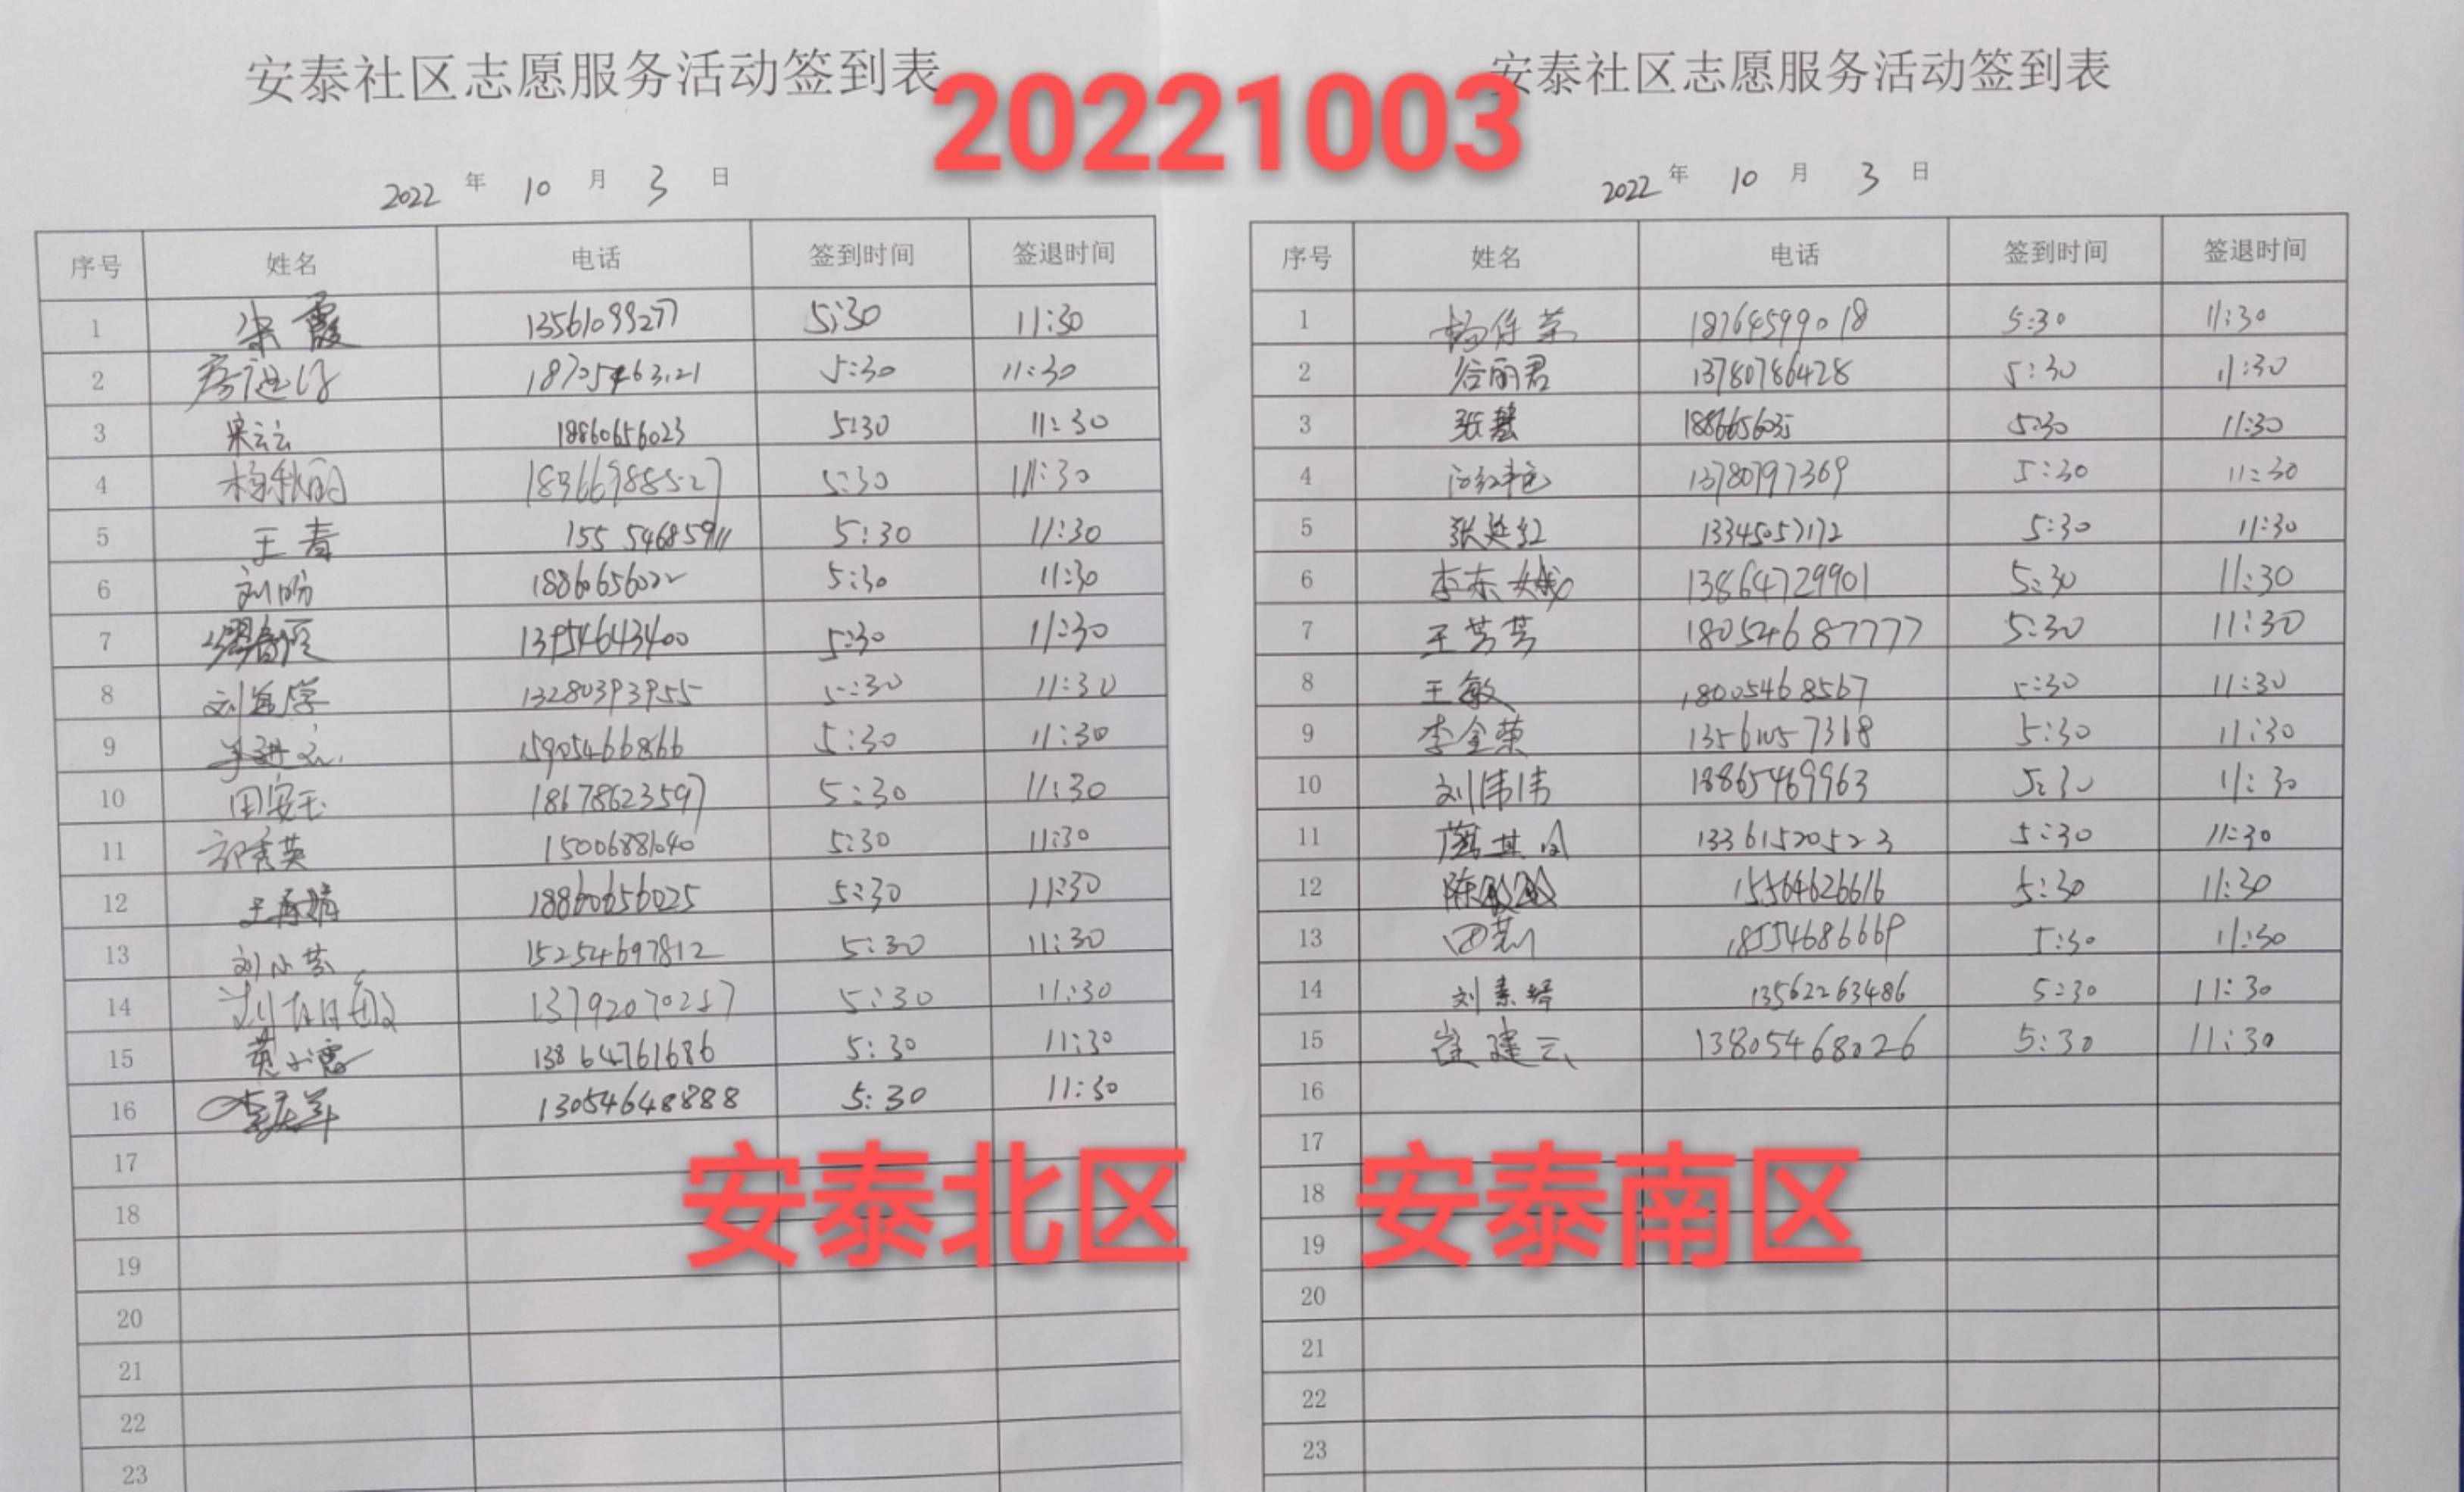 安泰社区志愿服务活动签到表
2022 年 10 月 3 日
序号 姓名 电话 签到时间 签退时间
1 宋霞 13561099277 5:30 11:30
2 18705463121 5:30 11:30
3 宋云云 18860656023 5:30 11:30
4 杨秋丽 18366988527 5:30 11:30
5 王青 15554685911 5:30 11:30
6 刘盼 18860656022 5:30 11:30
7 13954643400 5:30 11:30
8 13280393955 5:30 11:30
9 15905466866 5:30 11:30
10 田安玉 18678623597 5:30 11:30
11 郭秀英 15006881640 5:30 11:30
12 18860656025 5:30 11:30
13 刘小芸 15254697812 5:30 11:30
14 13792070257 5:30 11:30
15 黄小霞 13864761686 5:30 11:30
16 13054648888 5:30 11:30
17
18
19
20
21
22
23
安泰北区
20221003
安泰社区志愿服务活动签到表
2022 年 10 月 3 日
序号 姓名 电话 签到时间 签退时间
1 18764599018 5:30 11:30
2 谷丽君 13780786428 5:30 11:30
3 张慧 5:30 11:30
4 13780797369 5:30 11:30
5 张延红 13345057172 5:30 11:30
6 李东娥 13864729901 5:30 11:30
7 王芳芳 18054687777 5:30 11:30
8 王敏 18005468567 5:30 11:30
9 李金荣 13561057318 5:30 11:30
10 刘伟伟 18865469963 5:30 11:30
11 13361520523 5:30 11:30
12 陈 15564626616 5:30 11:30
13 田莉 18554686669 5:30 11:30
14 刘素娟 13562263486 5:30 11:30
15 崔建云 13805468026 5:30 11:30
16
17
18
19
20
21
22
23
安泰南区